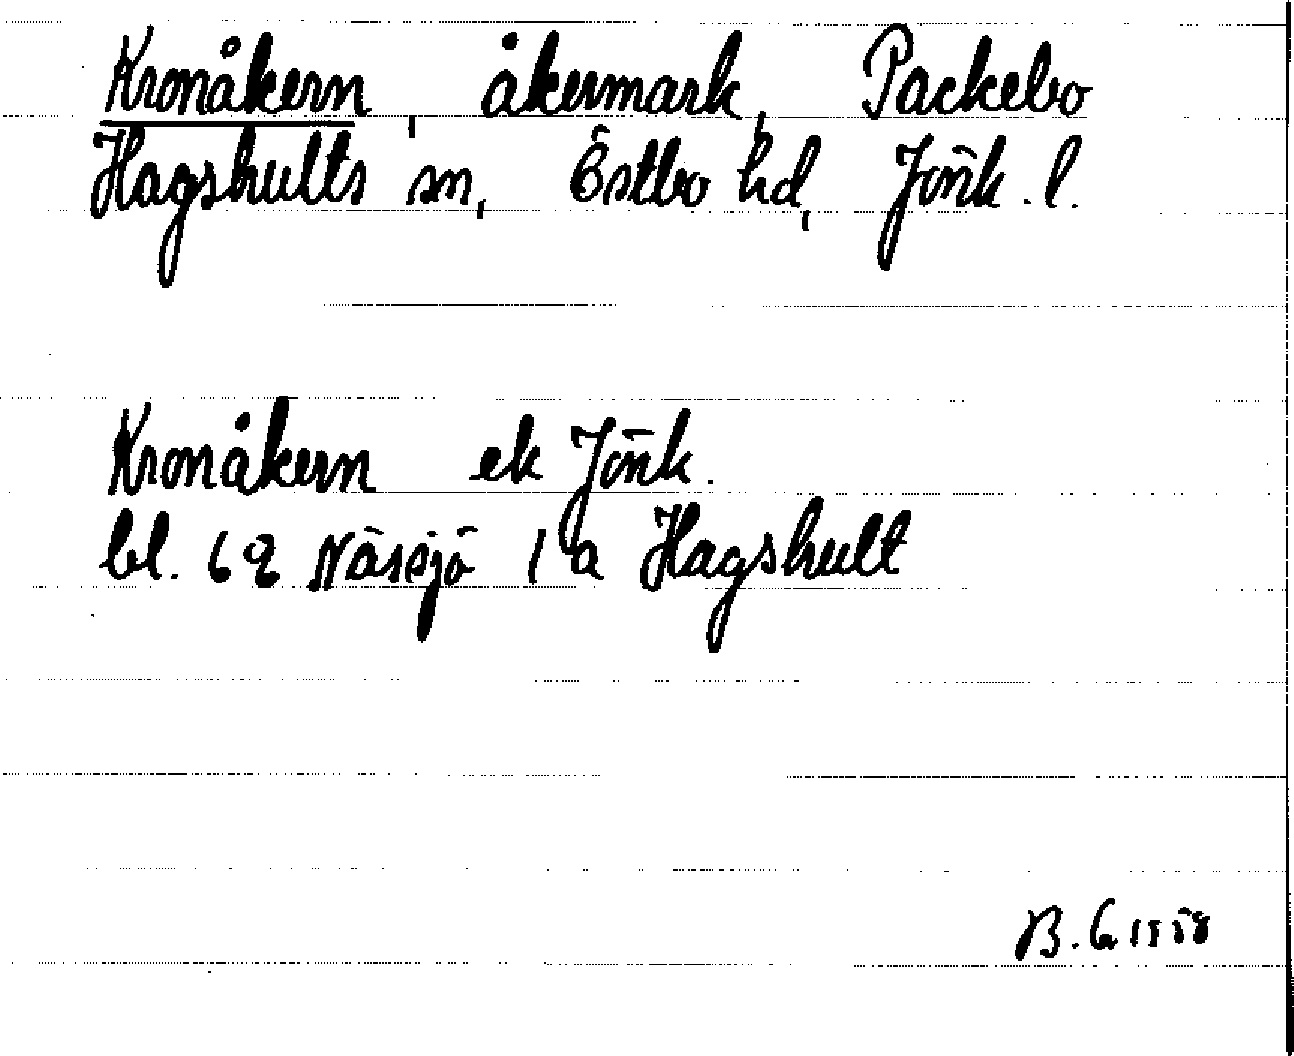 Kronåkern, åkermark, Packebo
Hagshults sn, Östbo hd, Jönk. l.
Kronåkern ek Jönk.
bl. 62 Nässjö 1 a Hagshult
B. G